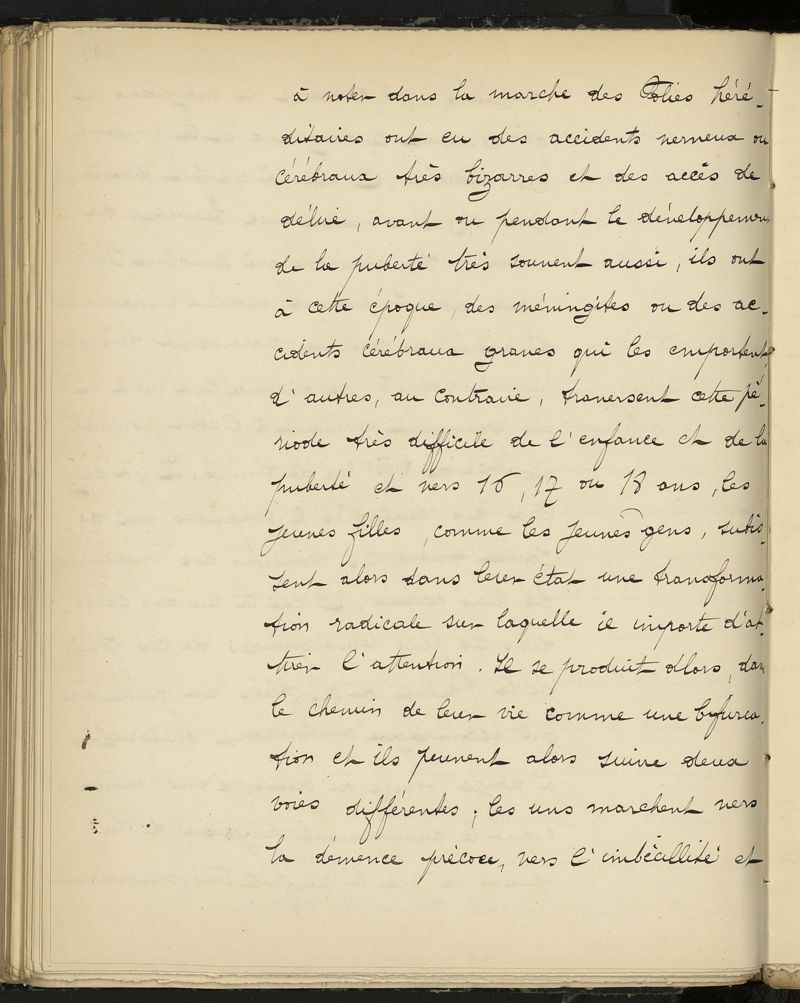 à noter dans la marche des Folies héré-
ditaires ont eu des accidents nerveux ou
cérébraux très bizarres et des accès de
délire, avant ou pendant le développemen
de la puberté très souvent aussi, ils ont
à cette époque, des méningites ou des ac-
cidents cérébraux graves qui les emportent,
d'autres, au contraire, traversent cette pé-
riode très difficile de l'enfance et de la
puberté et vers 16, 17 ou 18 ans, les
jeunes filles, comme les jeunes gens, subis-
sent alors dans leur état une transforma-
tion radicale sur laquelle il importe d'at-
tirer l'attention. Il se produit alors, dans
le chemin de leur vie comme une bifurca-
tion et ils peuvent alors suivre deux
voies différentes; les uns marchent vers
la démence précoce, vers l'imbécillité et